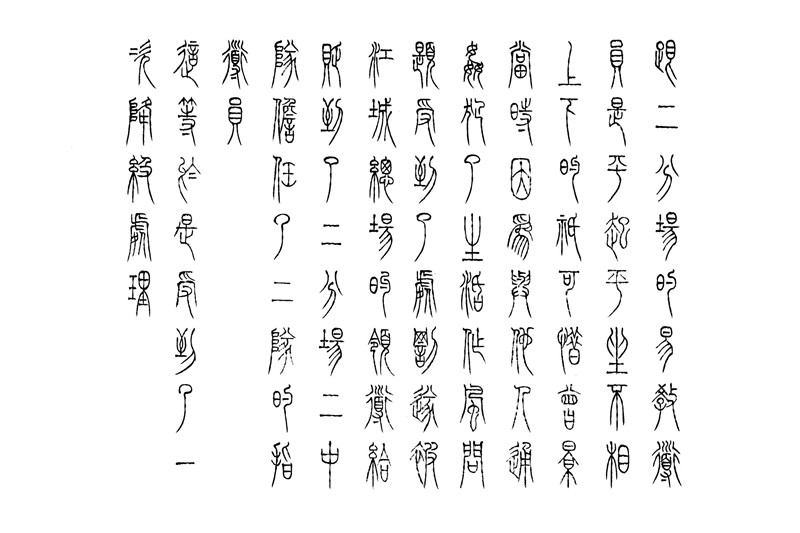 跟二分場的易教導
員是平起平坐不相
上下的祇可惜曾某
當時因爲與他人通
姦犯了生活作風問
題受到了處罰遂被
江城總場的領導給
貶到了二分場二中
隊擔任了二隊的指
導員
這等於是受到了一
次降級處理